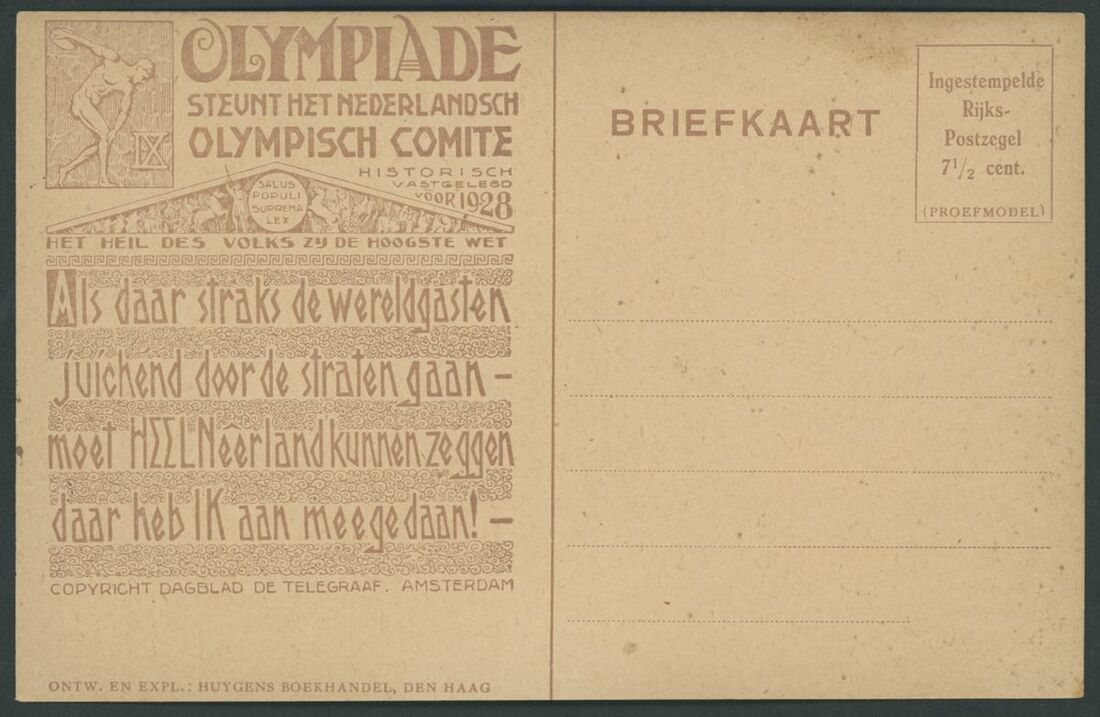 OLYMPIADE
STEUNT HET NEDERLANDSCH
OLYMPISCH COMITE
IX
HISTORISCH
VASTGELEGD
VOOR 1928
SALUS
POPULI
SUPREMA
LEX
HET HEIL DES VOLKS ZY DE HOOGSTE WET
Als daar straks de wereldgasten
juichend door de straten gaan —
moet HEEL Neêrland kunnen zeggen
daar heb IK aan meegedaan! —
COPYRICHT DAGBLAD DE TELEGRAAF. AMSTERDAM
ONTW. EN EXPL.: HUYGENS BOEKHANDEL, DEN HAAG
BRIEFKAART
Ingestempelde
Rijks-
Postzegel
7 1/2 cent.
(PROEFMODEL)